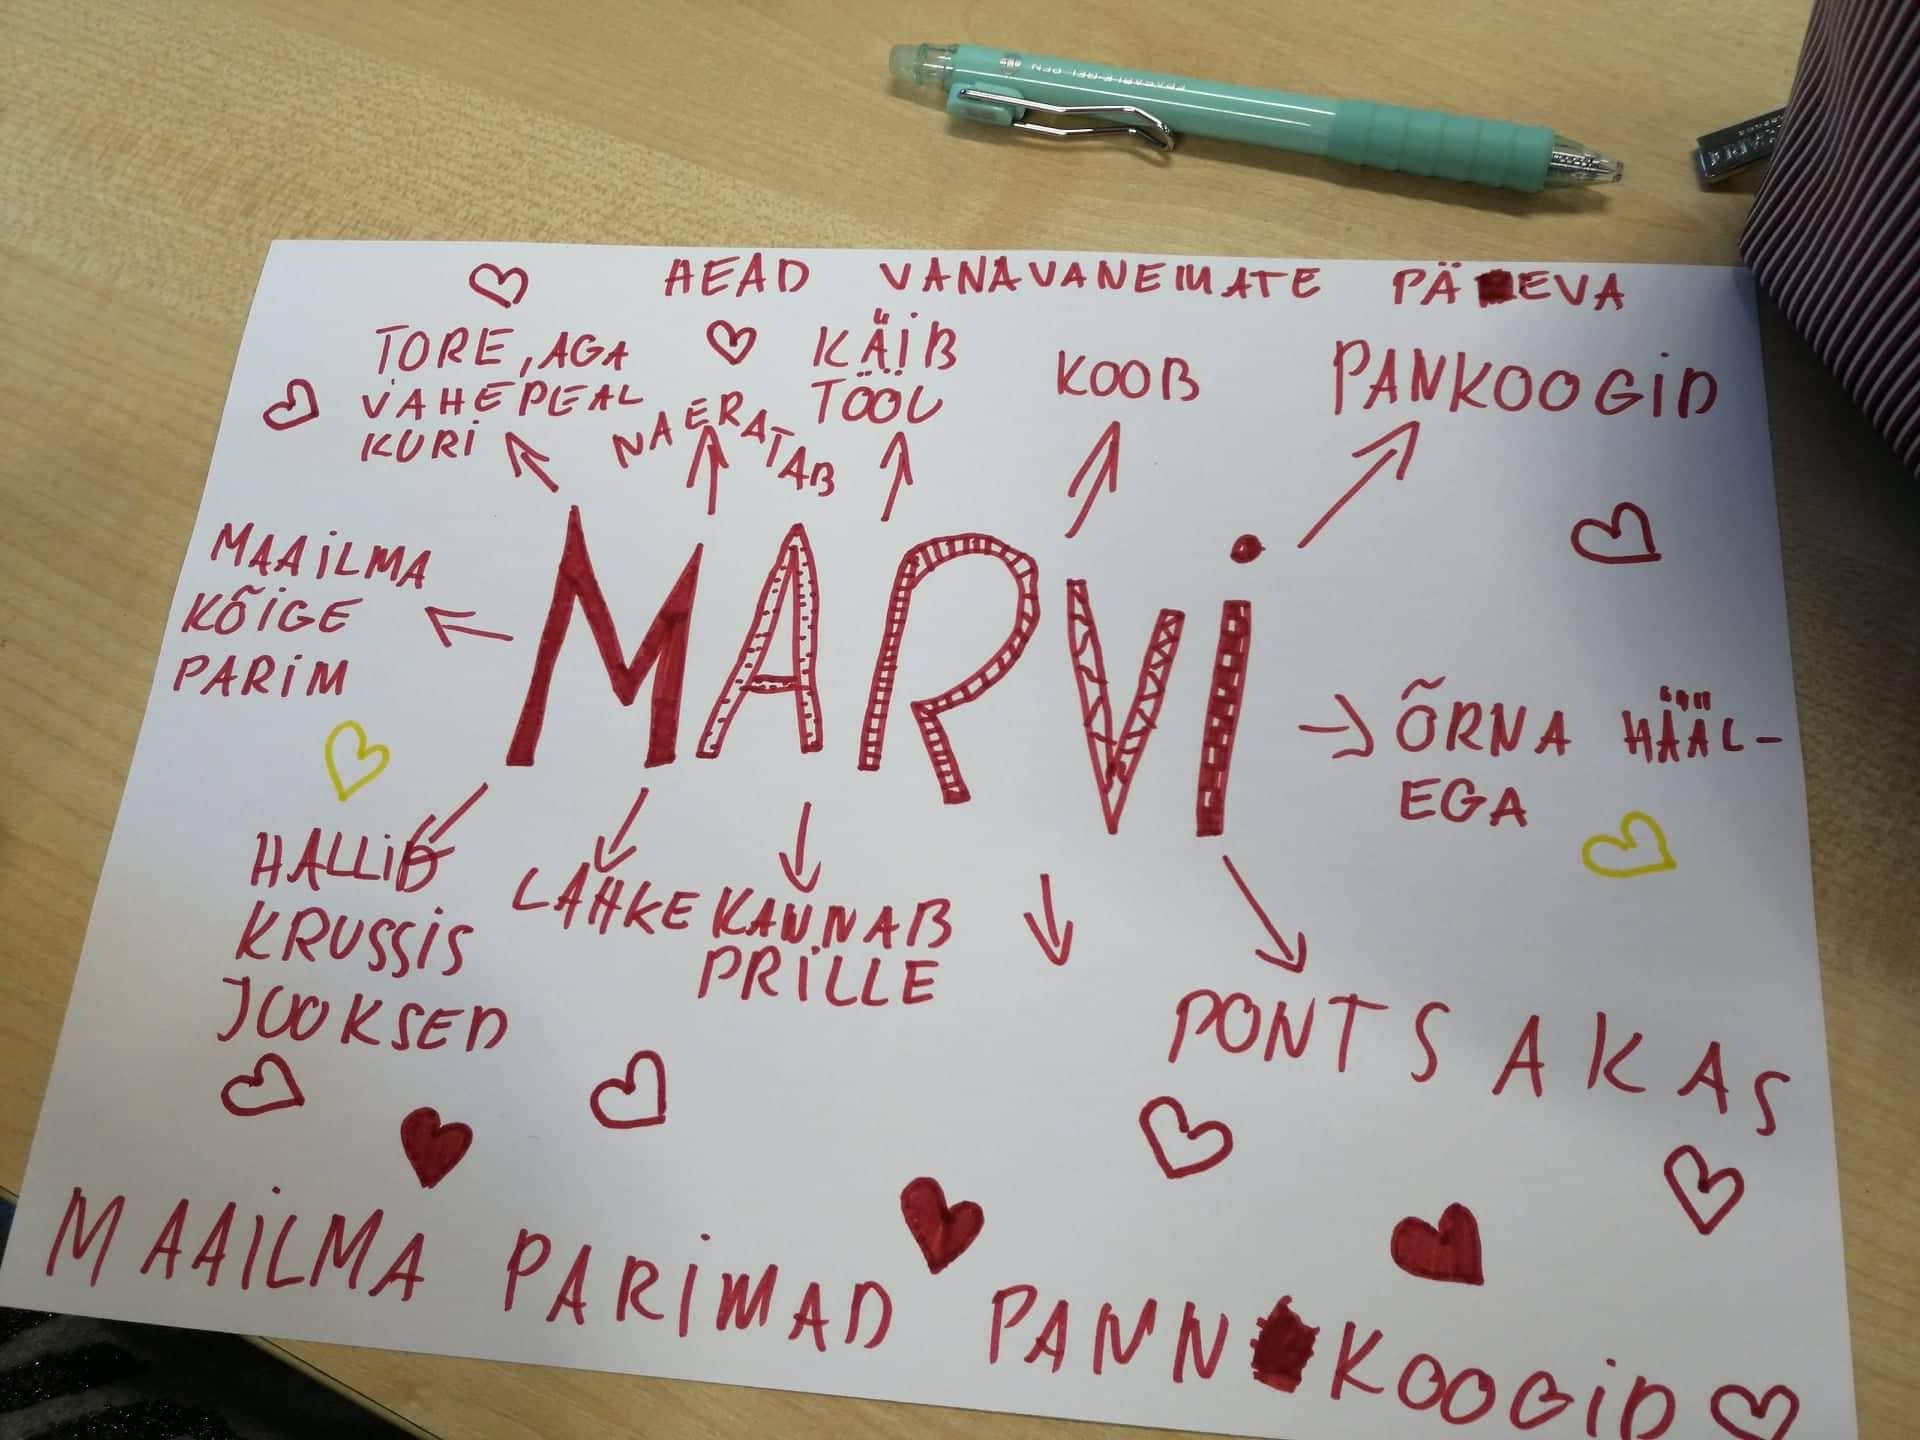 ERASABLE GEL PEN
HEAD VANAVANEMATE PÄEVA
TORE, AGA
VAHEPEAL
KURI
NAERATAB
KÄIB
TÖÖL
KOOB
PANKOOGID
MAAILMA
KÕIGE
PARIM
MARVi
ÕRNA HÄÄL-
EGA
HALLID
KRUSSIS
JUUKSED
LAHKE
KANNAB
PRILLE
PONTSAKAS
MAAILMA PARIMAD PANNKOOGID